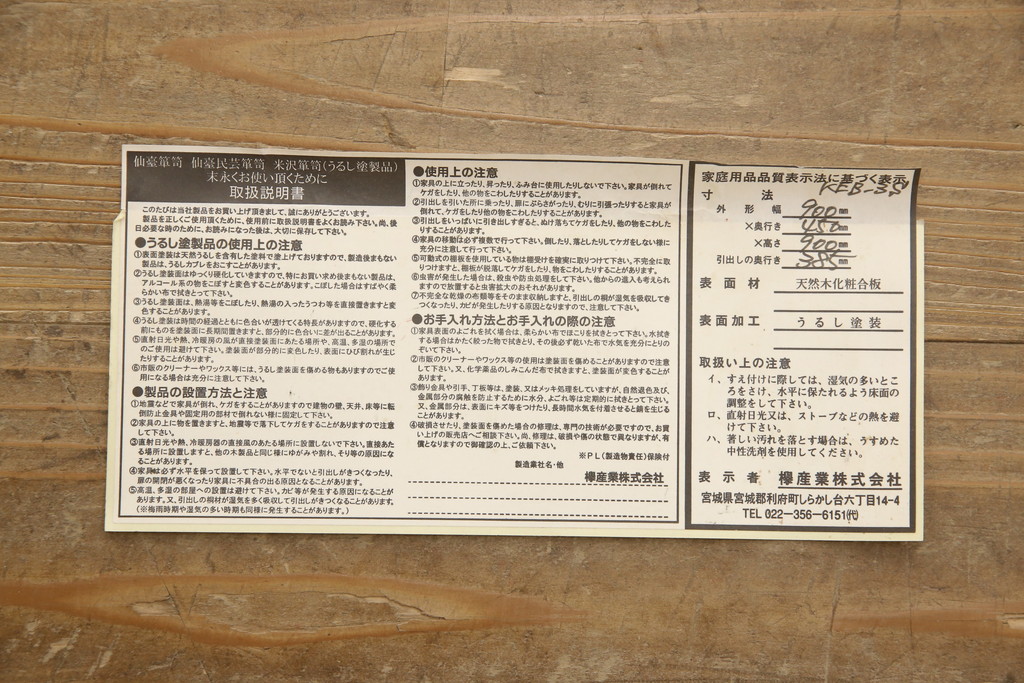 仙臺箪笥 仙臺民芸箪笥 米沢箪笥(うるし塗製品)
末永くお使い頂くために
取扱説明書
このたびは当社製品をお買い上げ頂きまして、誠にありがとうございます。
製品を正しくご使用頂くために、使用前に取扱説明書をよくお読み下さい。尚、後
日必要な時のために、お読みになった後は、大切に保存して下さい。
●うるし塗製品の使用上の注意
①表面塗装は天然うるしを含有した塗料で塗上げておりますので、製造後まもない
製品は、うるしカブレをおこすことがあります。
②うるし塗装面はゆっくり硬化していきますので、特にお買い求め後まもない製品は、
アルコール系の物をこぼすと変色することがあります。こぼした場合はすばやく柔
らかい布で拭きとって下さい。
③うるし塗装面は、熱湯等をこぼしたり、熱湯の入ったうつわ等を直接置きますと変
色することがあります。
④うるし塗装は時間の経過とともに色合いが透けてくる特長がありますので、硬化する
前にものを塗装面に長期間置きますと、部分的に色合いに差が出ることがあります。
⑤直射日光や熱、冷暖房の風が直接塗装面にあたる場所や、高温、多湿の場所で
のご使用は避けて下さい。塗装面が部分的に変色したり、表面にひび割れが生じ
たりすることがあります。
⑥市販のクリーナーやワックス等には、うるし塗装面を傷める物もありますのでご使
用になる場合は充分に注意して下さい。
●製品の設置方法と注意
①地震などで家具が倒れ、ケガをすることがありますので建物の壁、天井、床等に転
倒防止金具や固定用の部材で倒れない様に固定して下さい。
②家具の上に物を置きますと、地震等で落下してケガをすることがありますので注意
して下さい。
③直射日光や熱、冷暖房器の直接風のあたる場所に設置しないで下さい。直接あた
る場所に設置しますと、他の木製品と同じ様にゆがみや割れ、そり等の原因にな
ることがあります。
④家具は必ず水平を保って設置して下さい。水平でないと引出しがきつくなったり、
扉の開閉が悪くなったり家具に不具合の出る原因となることがあります。
⑤高温、多湿の部屋への設置は避けて下さい。カビ等が発生する原因になることが
あります。又、引出しの桐材が湿気を多く吸収して引出しがきつくなることがあります。
(※梅雨時期や湿気の多い時期も同様に発生することがあります。)
●使用上の注意
①家具の上に立ったり、昇ったり、ふみ台に使用したりしないで下さい。家具が倒れて
ケガをしたり、他の物をこわしたりすることがあります。
②引出しを引いた所に乗ったり、扉にぶらさがったり、むりに引張ったりすると家具が
倒れて、ケガをしたり他の物をこわしたりすることがあります。
③引出しをいっぱいに引き出しすぎると、ぬけ落ちてケガをしたり、他の物をこわした
りすることがあります。
④家具の移動は必ず複数で行って下さい。倒したり、落としたりしてケガをしない様に
充分に注意して行って下さい。
⑤可動式の棚板を使用している物は棚受けを確実に取りつけて下さい。不完全に取
りつけますと、棚板が脱落してケガをしたり、物をこわしたりすることがあります。
⑥虫害が発生した場合は、殺虫や防虫処理をして下さい。他からの進入も考えられ
ますので放置すると虫害拡大のおそれがあります。
⑦不完全な乾燥の布類等をそのまま収納しますと、引出しの桐が湿気を吸収してき
つくなったり、カビが発生したりする原因となりますので、注意して下さい。
●お手入れ方法とお手入れの際の注意
①家具表面のよごれを拭く場合は、柔らかい布でほこりを拭きとって下さい。水拭き
する場合はかたく絞った物で拭きとり、その後必ず乾いた布で水気を充分にとりの
ぞいて下さい。
②市販のクリーナーやワックス等の使用は塗装面を傷めることがありますので注意
して下さい。又、化学薬品のしみこんだ布で拭きますと、塗装面が変色することが
あります。
③飾り金具や引手、丁板等は、塗装、又はメッキ処理をしていますが、自然退色及び、
金属部分の腐触を防止するために水分、よごれ等は定期的に拭きとって下さい。
又、金属部分は、表面にキズ等をつけたり、長時間水気を付着させると錆を生じる
ことがあります。
④破損させたり、塗装面を傷めた場合の修理は、専門の技術が必要ですので、お買
い上げの販売店へご相談下さい。尚、修理は、破損や傷の状態で異なりますが、有
償となりますので御確認の上、ご依頼下さい。
※PL(製造物責任)保険付
製造業社名・他
欅産業株式会社
家庭用品品質表示法に基づく表示
KEB-3S
寸法
外形 幅 900㎜
×奥行き 450㎜
×高さ 900㎜
引出しの奥行き 385㎜
表面材 天然木化粧合板
表面加工 うるし塗装
取扱い上の注意
イ、すえ付けに際しては、湿気の多いとこ
ろをさけ、水平に保たれるよう床面の
調整をして下さい。
ロ、直射日光又は、ストーブなどの熱を避
けて下さい。
ハ、著しい汚れを落とす場合は、うすめた
中性洗剤を使用してください。
表示者 欅産業株式会社
宮城県宮城郡利府町しらかし台六丁目14-4
TEL 022-356-6151㈹